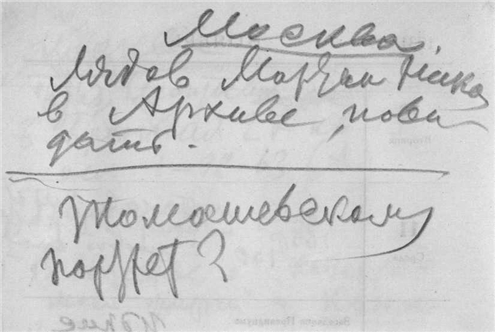 Москва.
Лядов Мартын Нико
в Архиве, пови
дать.
Томашевскому
портрет?